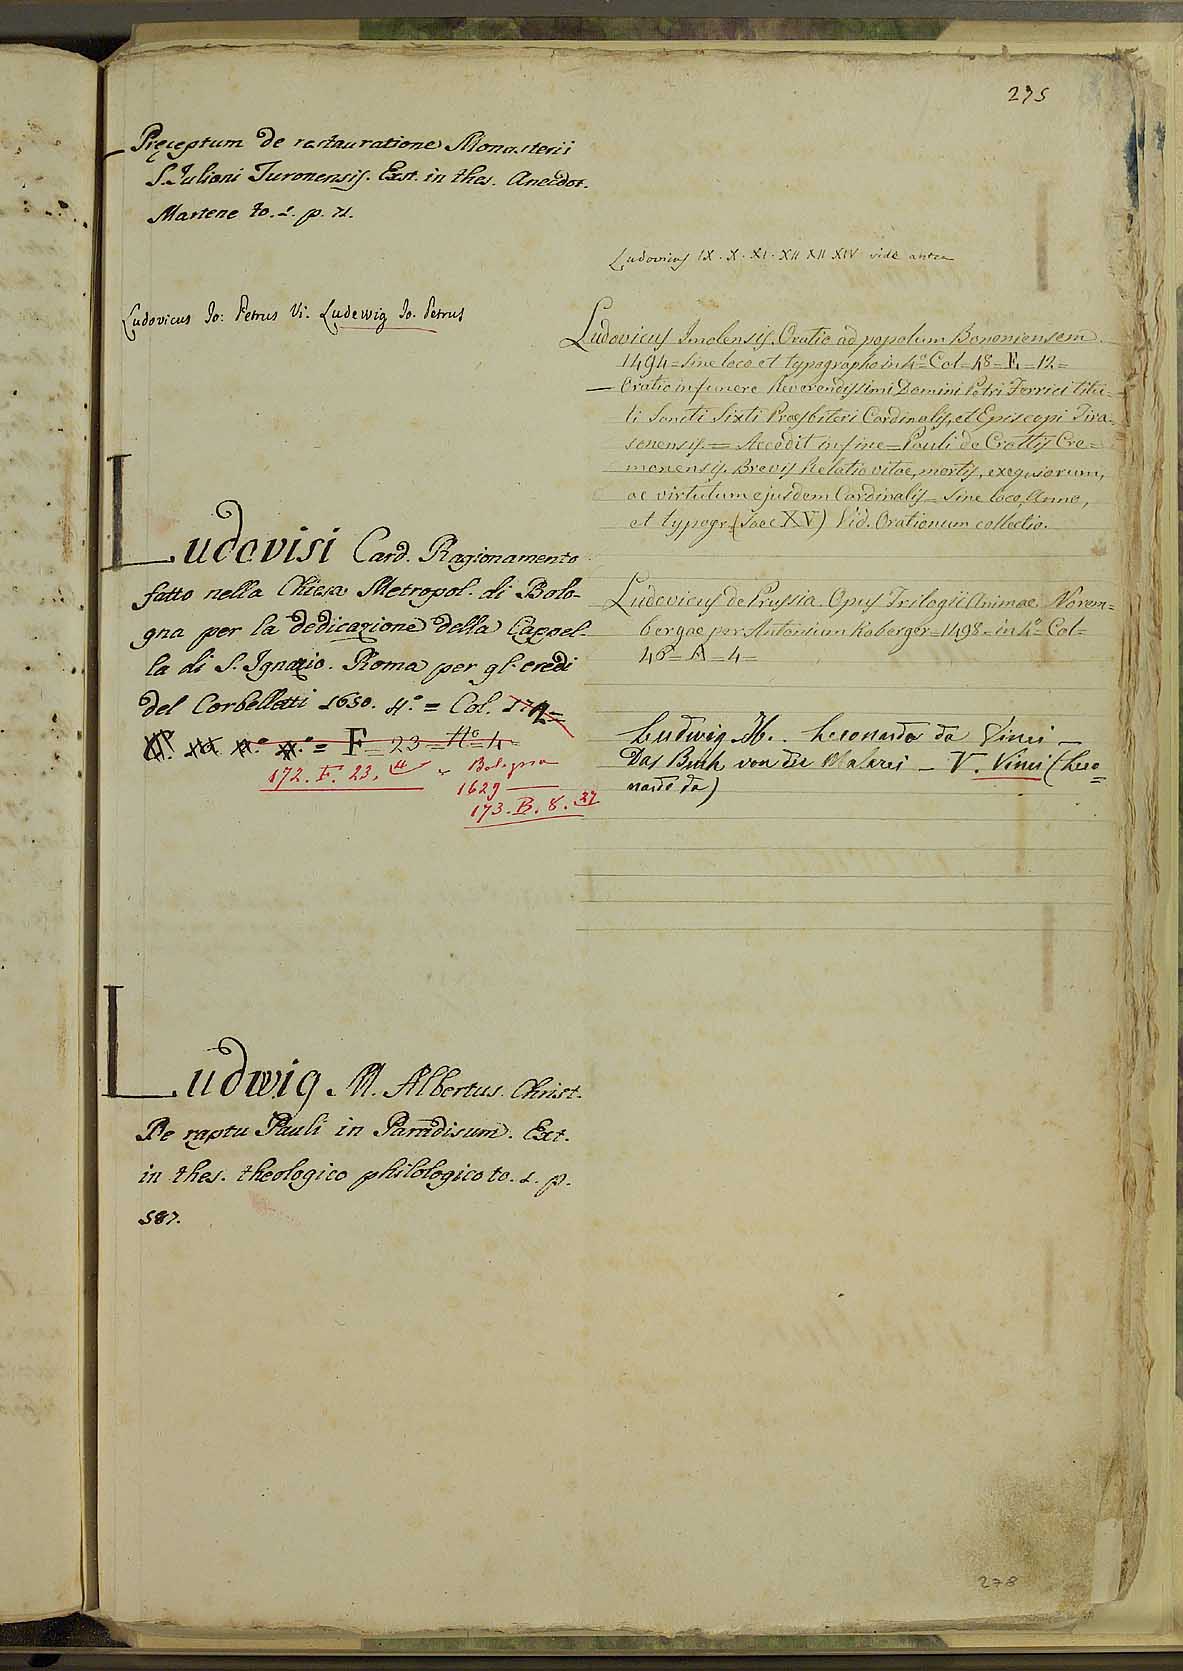 275
Pręceptum de restauratione Monasterii
S. Juliani Turonensis. Ext. in thes. Anecdot.
Martene to. 1. p. 71.
Ludovicus Jo: Petrus Vi. Ludewig Jo. Petrus
Ludovisi Card. Ragionamento
fatto nella Chiesa Metropol. di Bolo-
gna per la dedicazione della Cappel-
la di S. Ignazio. Roma per gl' eredi
del Corbelletti 1650. 4.° = Col.
= F = 23 = N° 4 =
172. F. 23. 4 Bologna
1629
173. B. 8. 37
Ludwig. M. Albertus Christ.
De raptu Pauli in Paradisum. Ext.
in thes. theologico philologico to. 2. p.
587.
Ludovicus IX. X. XI. XII XII XIV vide antea
Ludovicus Imolensis. Oratio ad popolum Bononiensem.
1494 = sine loco et typographo in 4° Col = 48 = E = 12 =
— Oratio in funere Reverendissimi Domini Petri Ferrici titu-
li Sancti Sixti Præsbiteri Cardinalis, et Episcopi Tira-
sonensis. = Accedit in fine = Pauli de Crottis Cre-
monensis. Brevis Relatio vitae, mortis, exequiarum,
ac virtutum ejusdem Cardinalis = sine loco, Anno,
et typogr. (saec XV) Vid. Orationum collectio.
Ludovicus de Prussia. Opus Trilogii Animae. Norem=
bergae per Antonium Koberger = 1498 = in 4° = Col =
46 = A = 4 =
Ludwig H. Leonardo da Vinci —
Das Buch von der Malerei — V. Vinci (Leo=
nardo da)
278